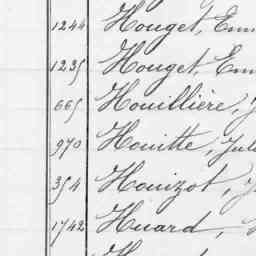 1244 Houget, Em
1235 Houget, Em
665 Houillière, J
970 Houitte, Jul
354 Houizot, J
1742 Huard,